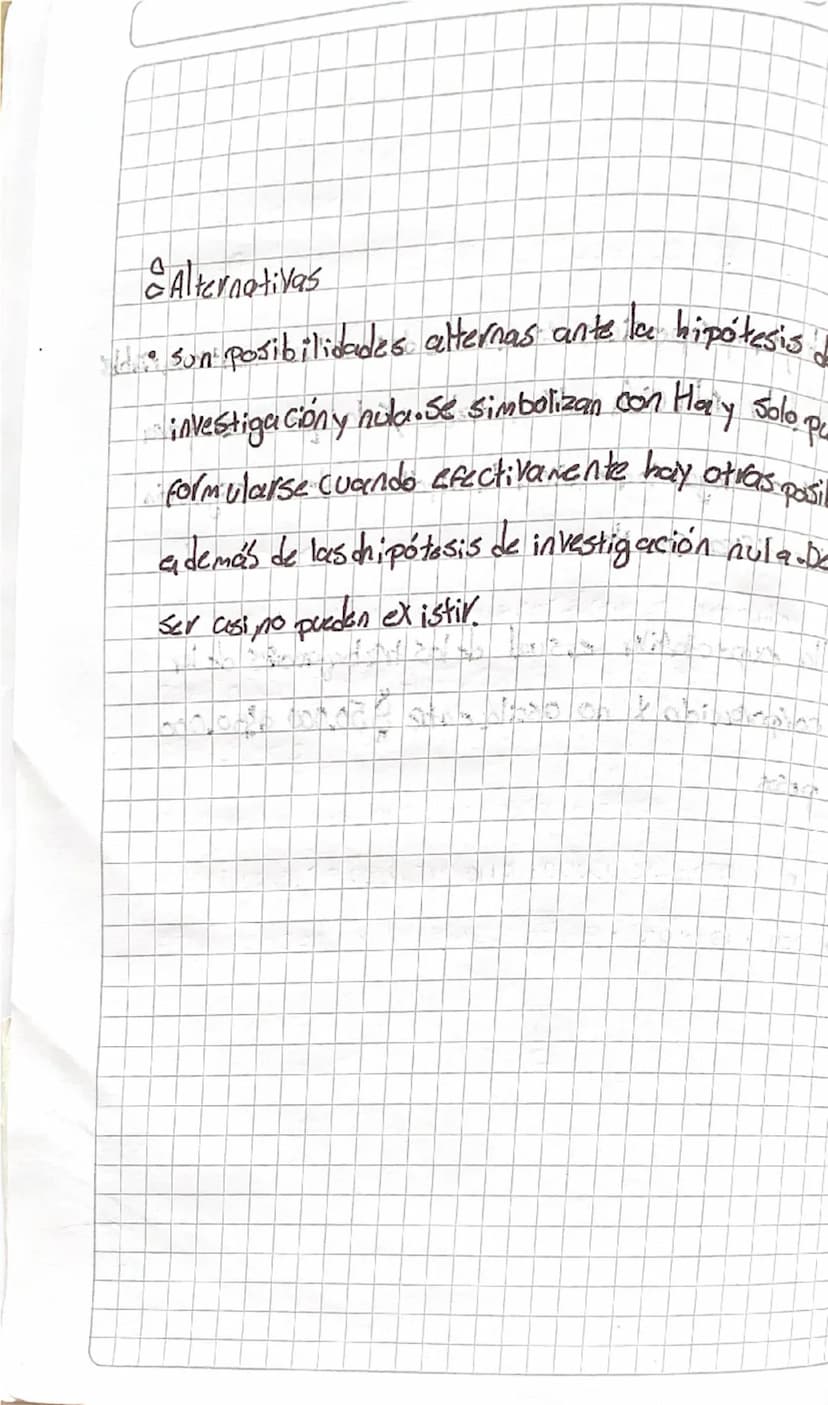 Alternativas
• son posibilidades alternas ante la hipótesis d
investigación y nula. Se simbolizan con Ha y solo pu
formularse cuando efectivamente hay otras posil
además de las hipótesis de investigación nula. De
ser asi, no pueden existir.